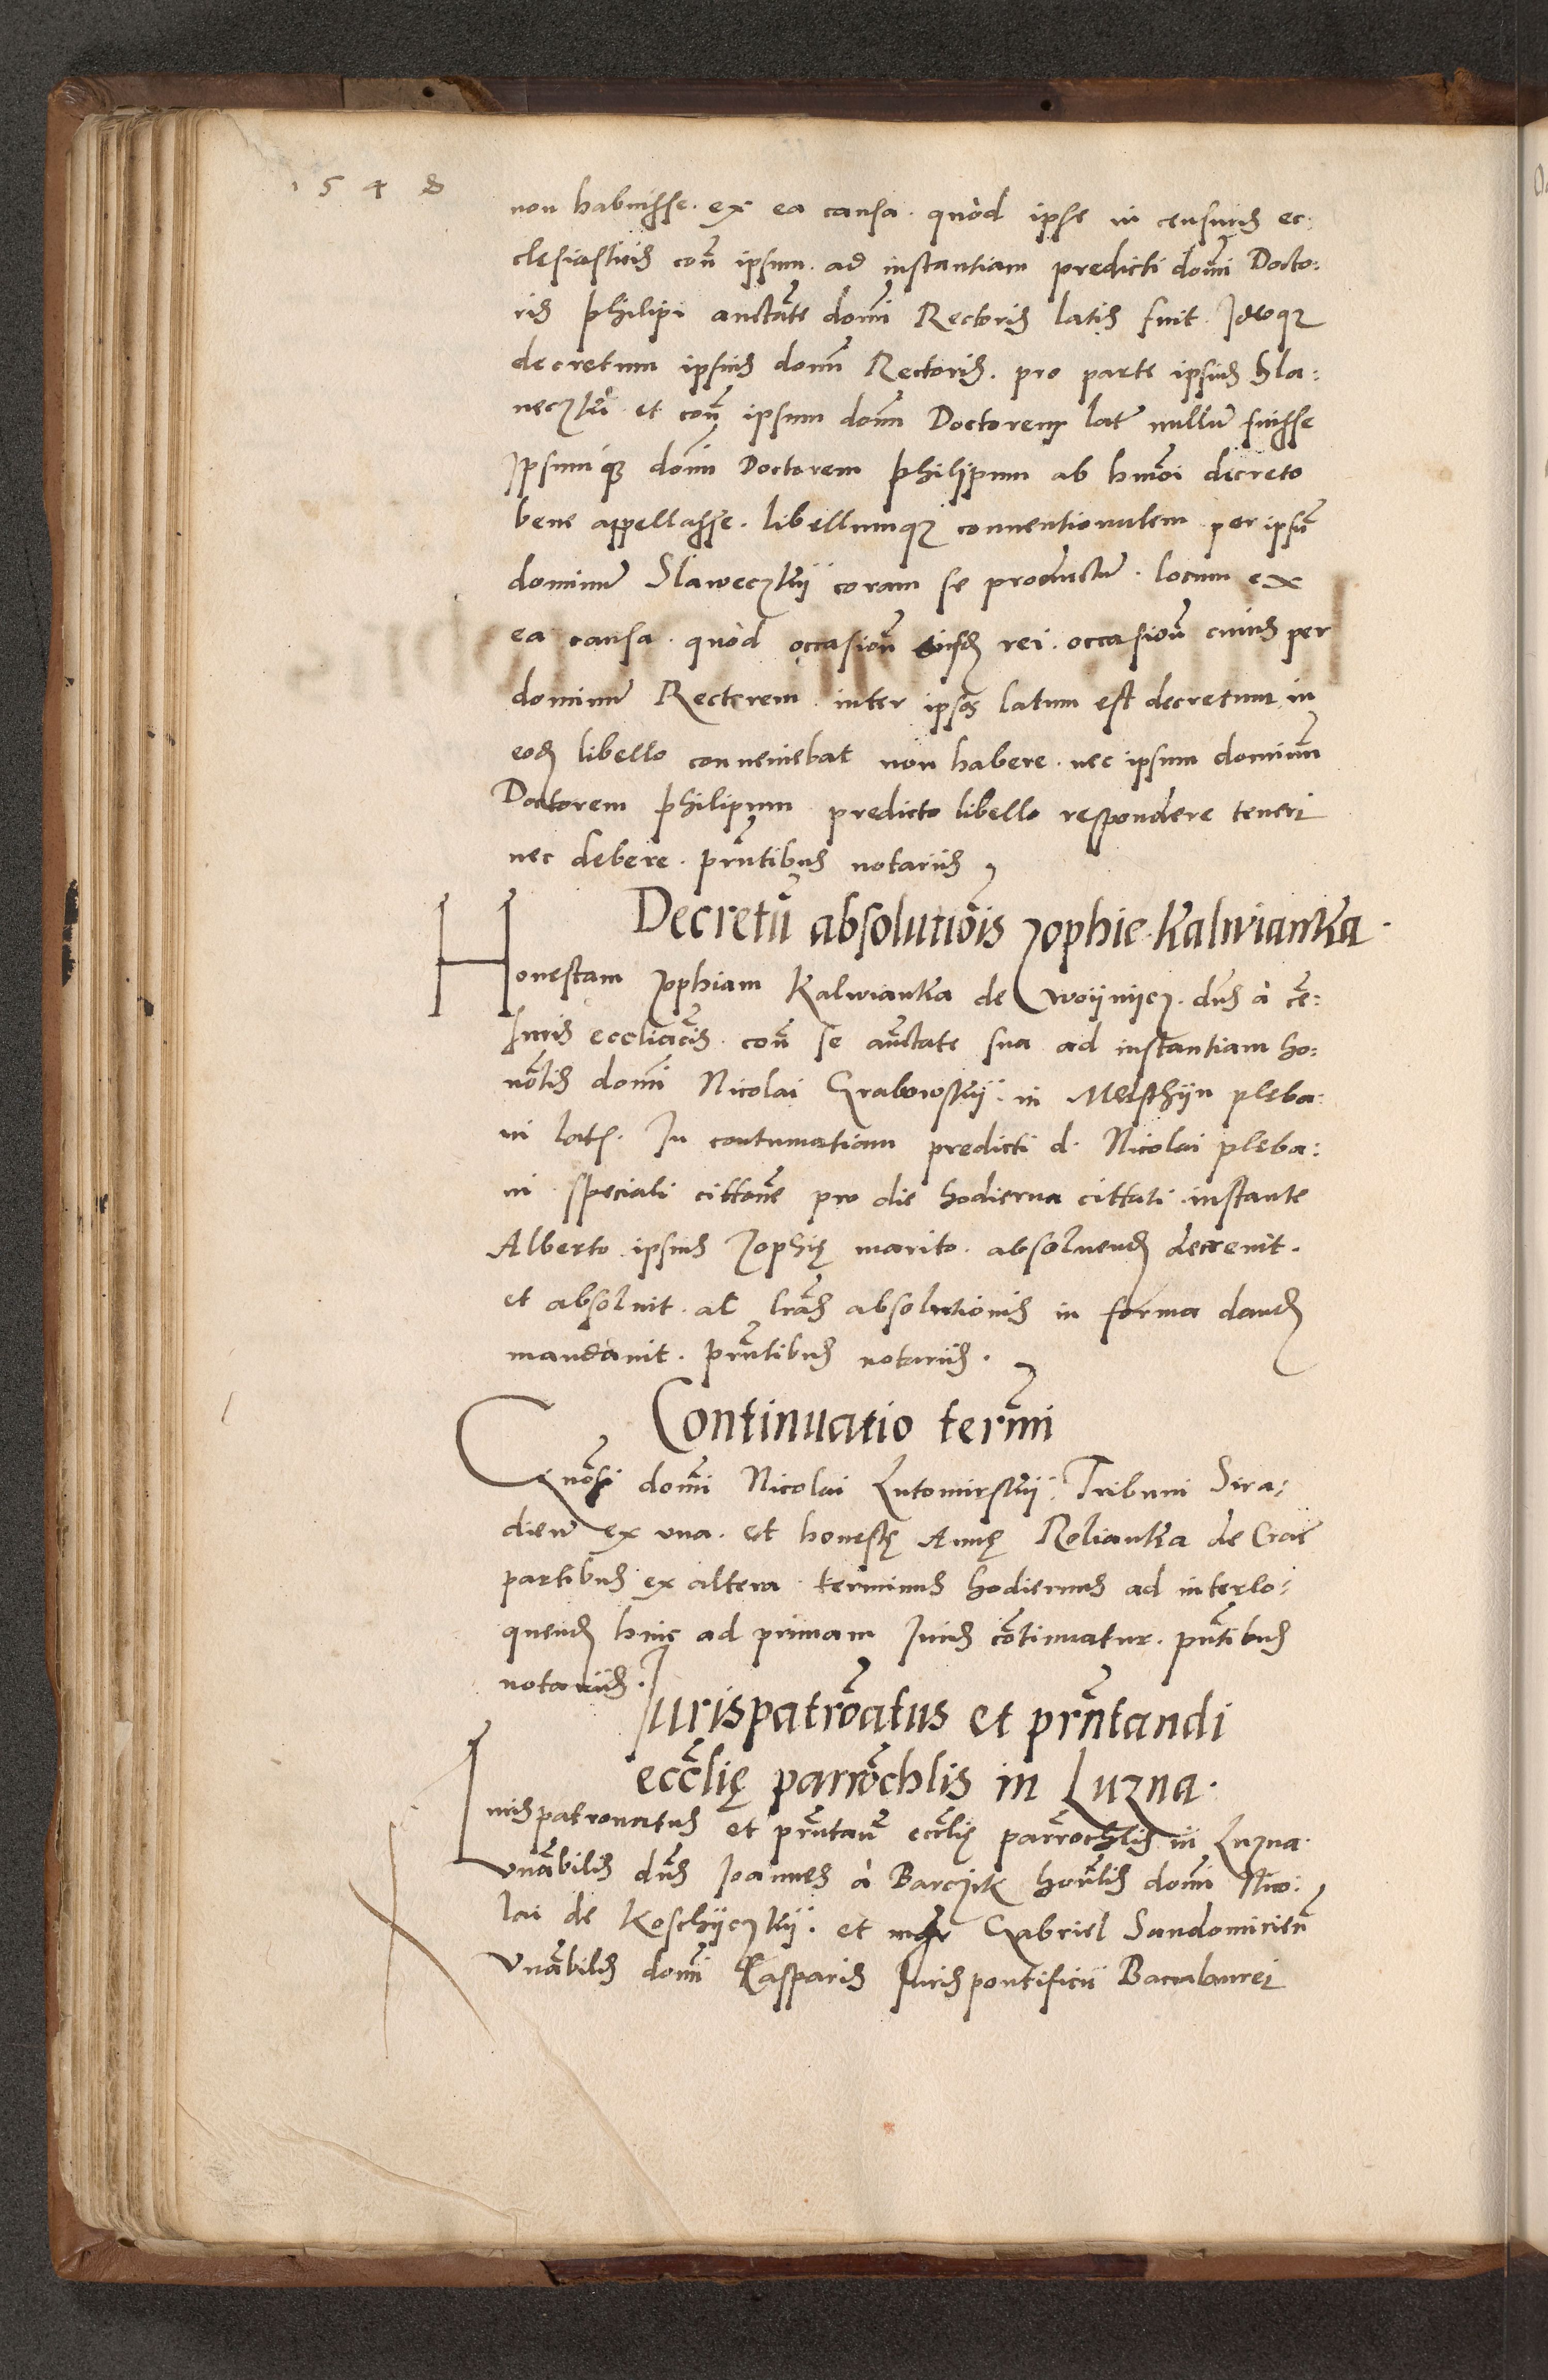 1548
non habuisse. ex ea causa. quòd ipse in censuris ec:
clesiasticis con̄ ipsum. ad instantiam predicti domī Docto:
ris Philipi auctāte domī Rectoris latis fuit. Ideoqꝫ
decretum ipsius domī Rectoris. pro parte ipsius Sla:
weczkij et con̄ ipsum domī Doctorem latū nullū fuisse
Ipsumqꝫ domī Doctorem Philippum ab hmōi decreto
bene appellasse. libellumqꝫ conuentionalem per ipsū
dominū Slaweczkij coram se productū. locum ex
ea causa. quòd occasioñ eiusđ rei. occasioñ cuius per
dominū Rectorem inter ipsos latum est decretum in
eođ libello conueniebat non habere. nec ipsum dominūm
Doctorem Philipum predicto libello respondere teneri
nec debere. pn̄tibus notariis
Decretū absolutiōis Zophie Kalwiantka.
Honestam Zophiam Kalwiantka de Woijnijcz. dn̄s à cē:
suris eccliacis con̄ se auctāte sua ad instantiam ho:
nōlis domī Nicolai Grabowskij. in Melschijn pleba:
ni latꝭ. In contumatiam predicti d. Nicolai pleba:
ni speciali cittōne pro die hodierna cittati. instante
Alberto ipsius Zophię marito. absoluenđ decreuit.
et absoluit. ac lrās absolutionis in forma danđ
mandauit. pn̄tibus notariis.
Continuatio termī
Gnōsi domī Nicolai Lutomirskij. Tribuni Sira:
dień ex vna. et honestę Annę Roliantka de Crać
partibus ex altera. terminus hodiernus ad interlo:
quenđ hinc ad primam Iuris cōtinuatur. pn̄tibus
notariis.
Iurispatrōatus et prn̄tandi
eccl̄ię parrōchlis in Luzna.
Iurispatronatus et prn̄tań eccl̄ię parrochlis in Luzna.
vnābilis dn̄s Ioannes à Barczik honlis domī Nico:
lai de Koschijczkij. et mḡr Gabriel Sandomirień
Vnābilis domī Casparis Iurispontificii Baccalaurei